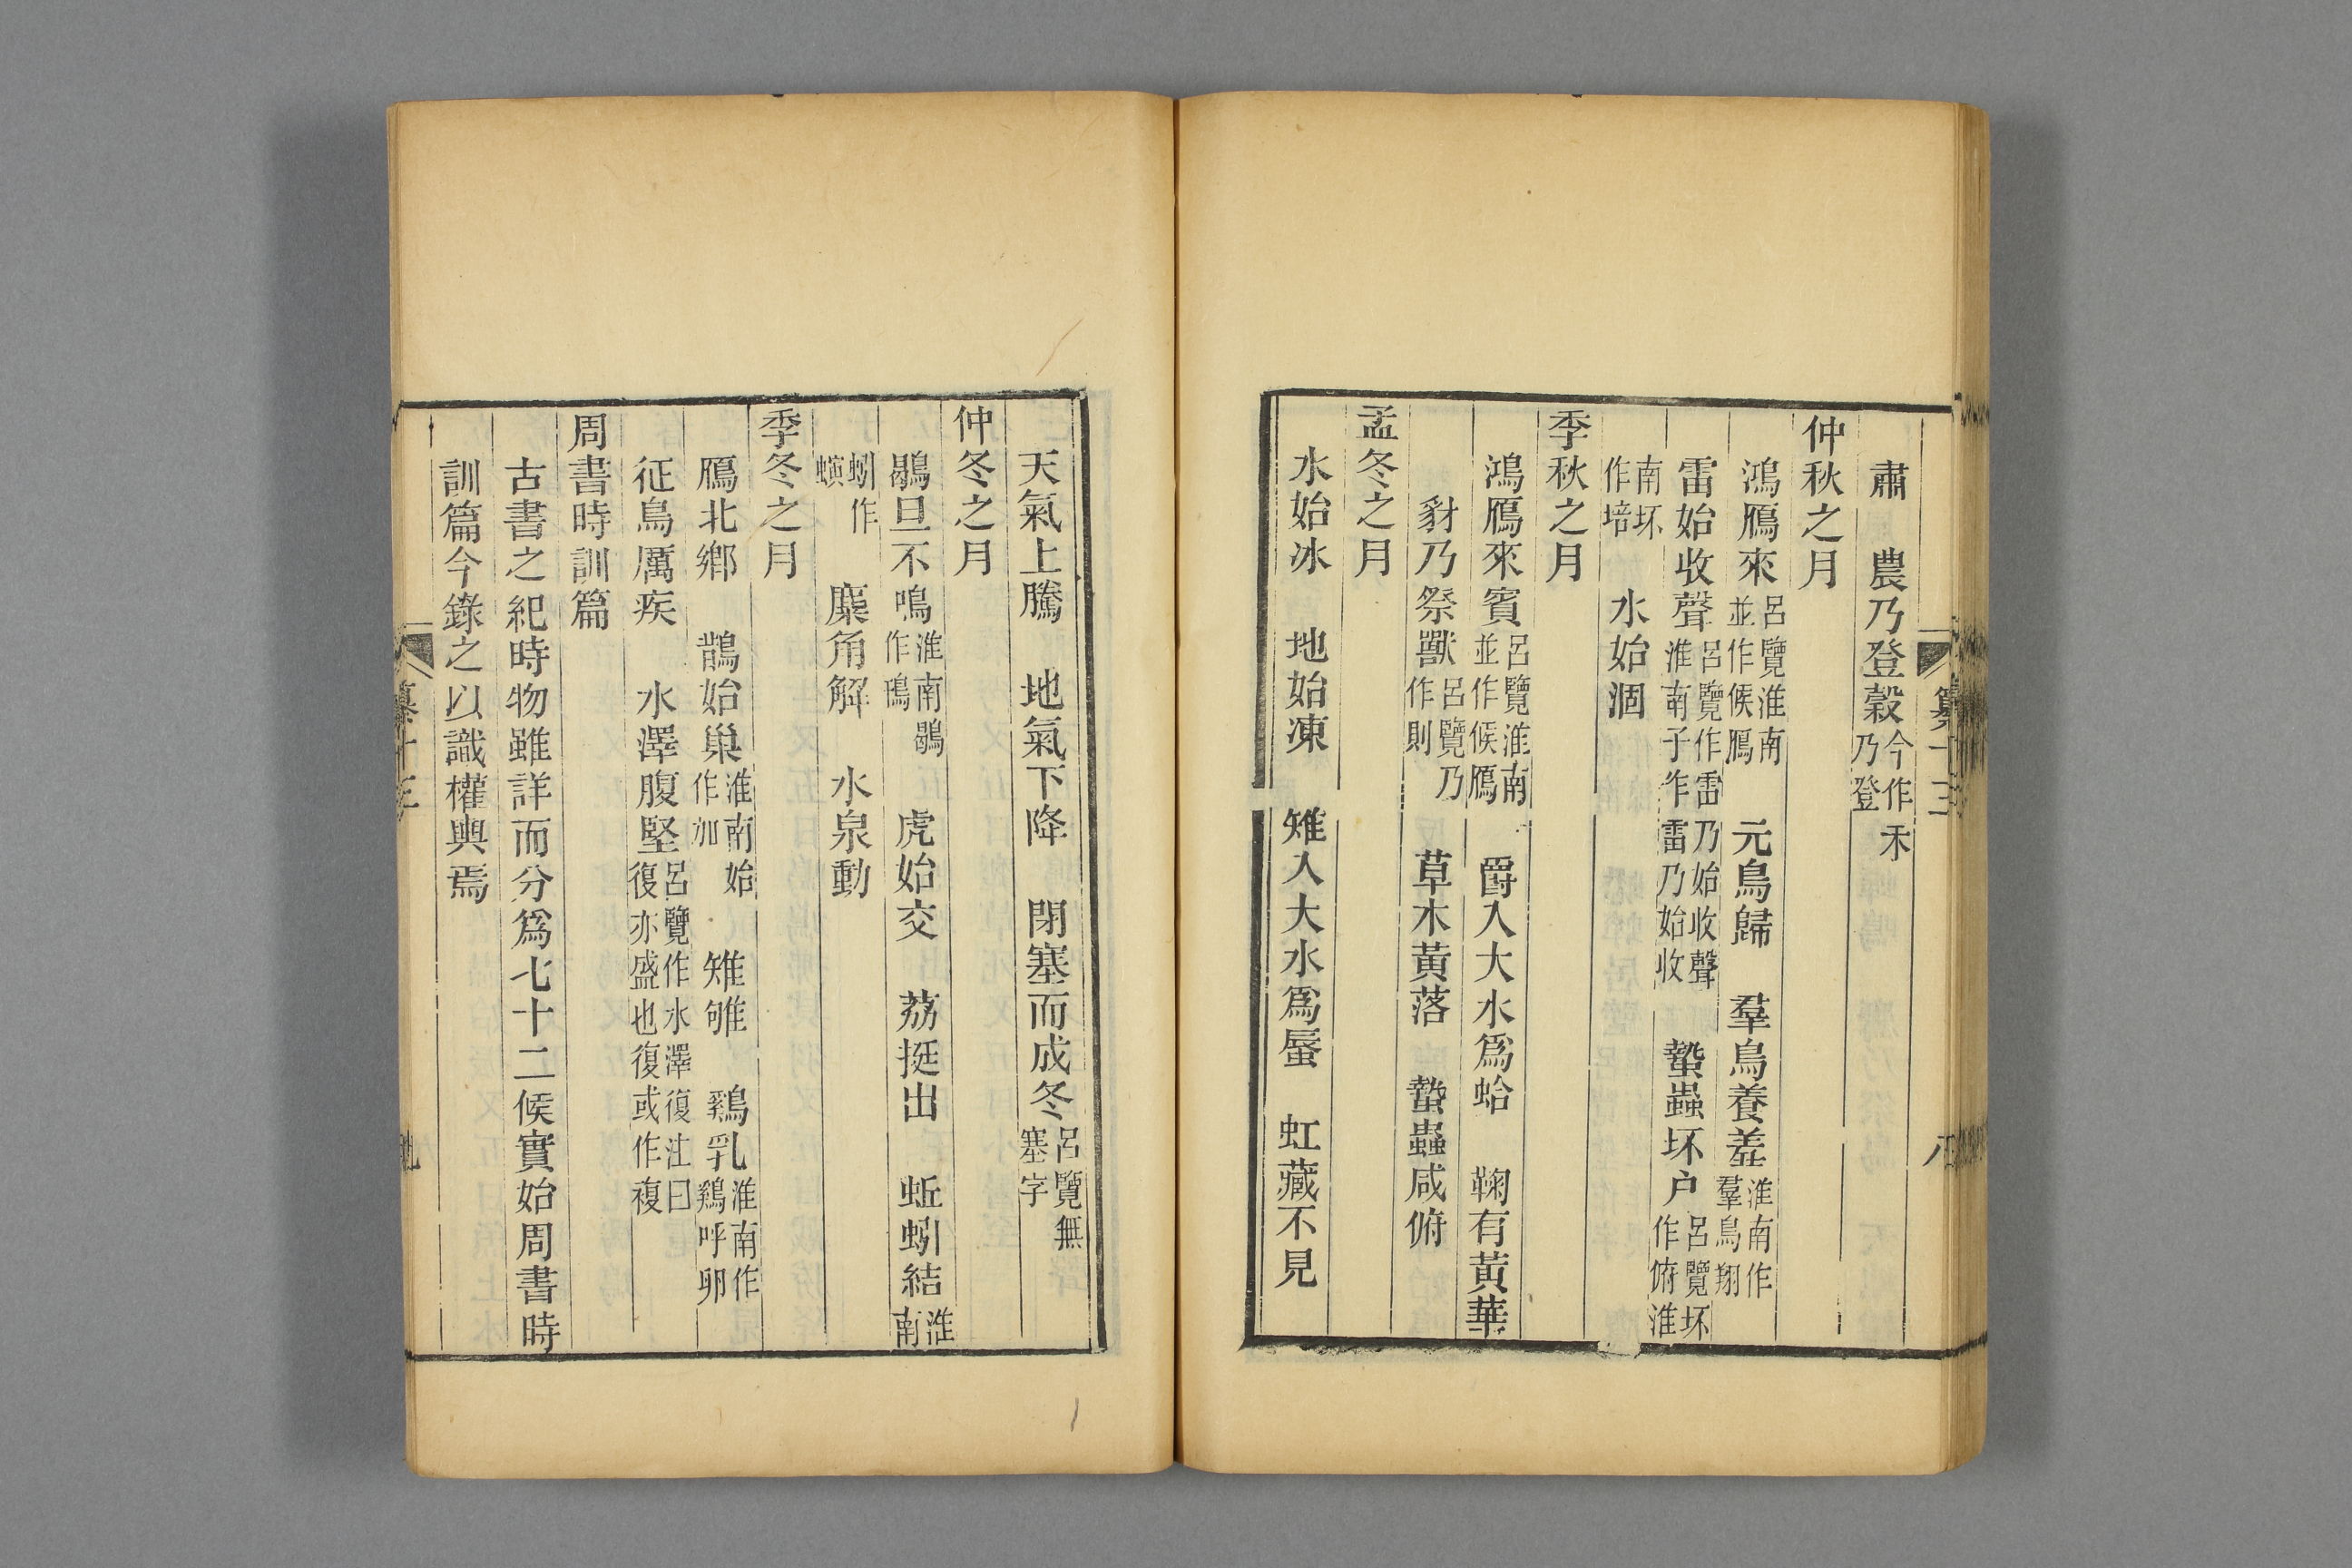 肅　農乃登穀今作禾乃登
仲秋之月
鴻鴈來呂覽淮南並作候鴈　元鳥歸　羣鳥養羞淮南作羣鳥翔
雷始收聲呂覽作雷乃始收聲淮南子作雷乃始收　蟄蟲坏户呂覽坏作俯淮
南坏作培　水始涸
季秋之月
鴻鴈來賓呂覽淮南並作候鴈　爵入大水爲蛤　鞠有黃華
豺乃祭獸呂覽乃作則　草木黃落　蟄蟲咸俯
孟冬之月
水始冰　地始凍　雉入大水爲蜃　虹藏不見
纂十三
八
天氣上騰　地氣下降　閉塞而成冬呂覽無塞字
仲冬之月
鶡旦不鳴淮南鶡作鳱　虎始交　荔挺出　蚯蚓結淮南
蚓作螾　麋角解　水泉動
季冬之月
鴈北鄉　鵲始巢淮南始作加　雉雊　鷄乳淮南作鷄呼卵
征鳥厲疾　水澤腹堅呂覽作水澤復注曰復亦盛也復或作複
周書時訓篇
古書之紀時物雖詳而分爲七十二候實始周書時
訓篇今錄之以識權輿焉
纂十三
九